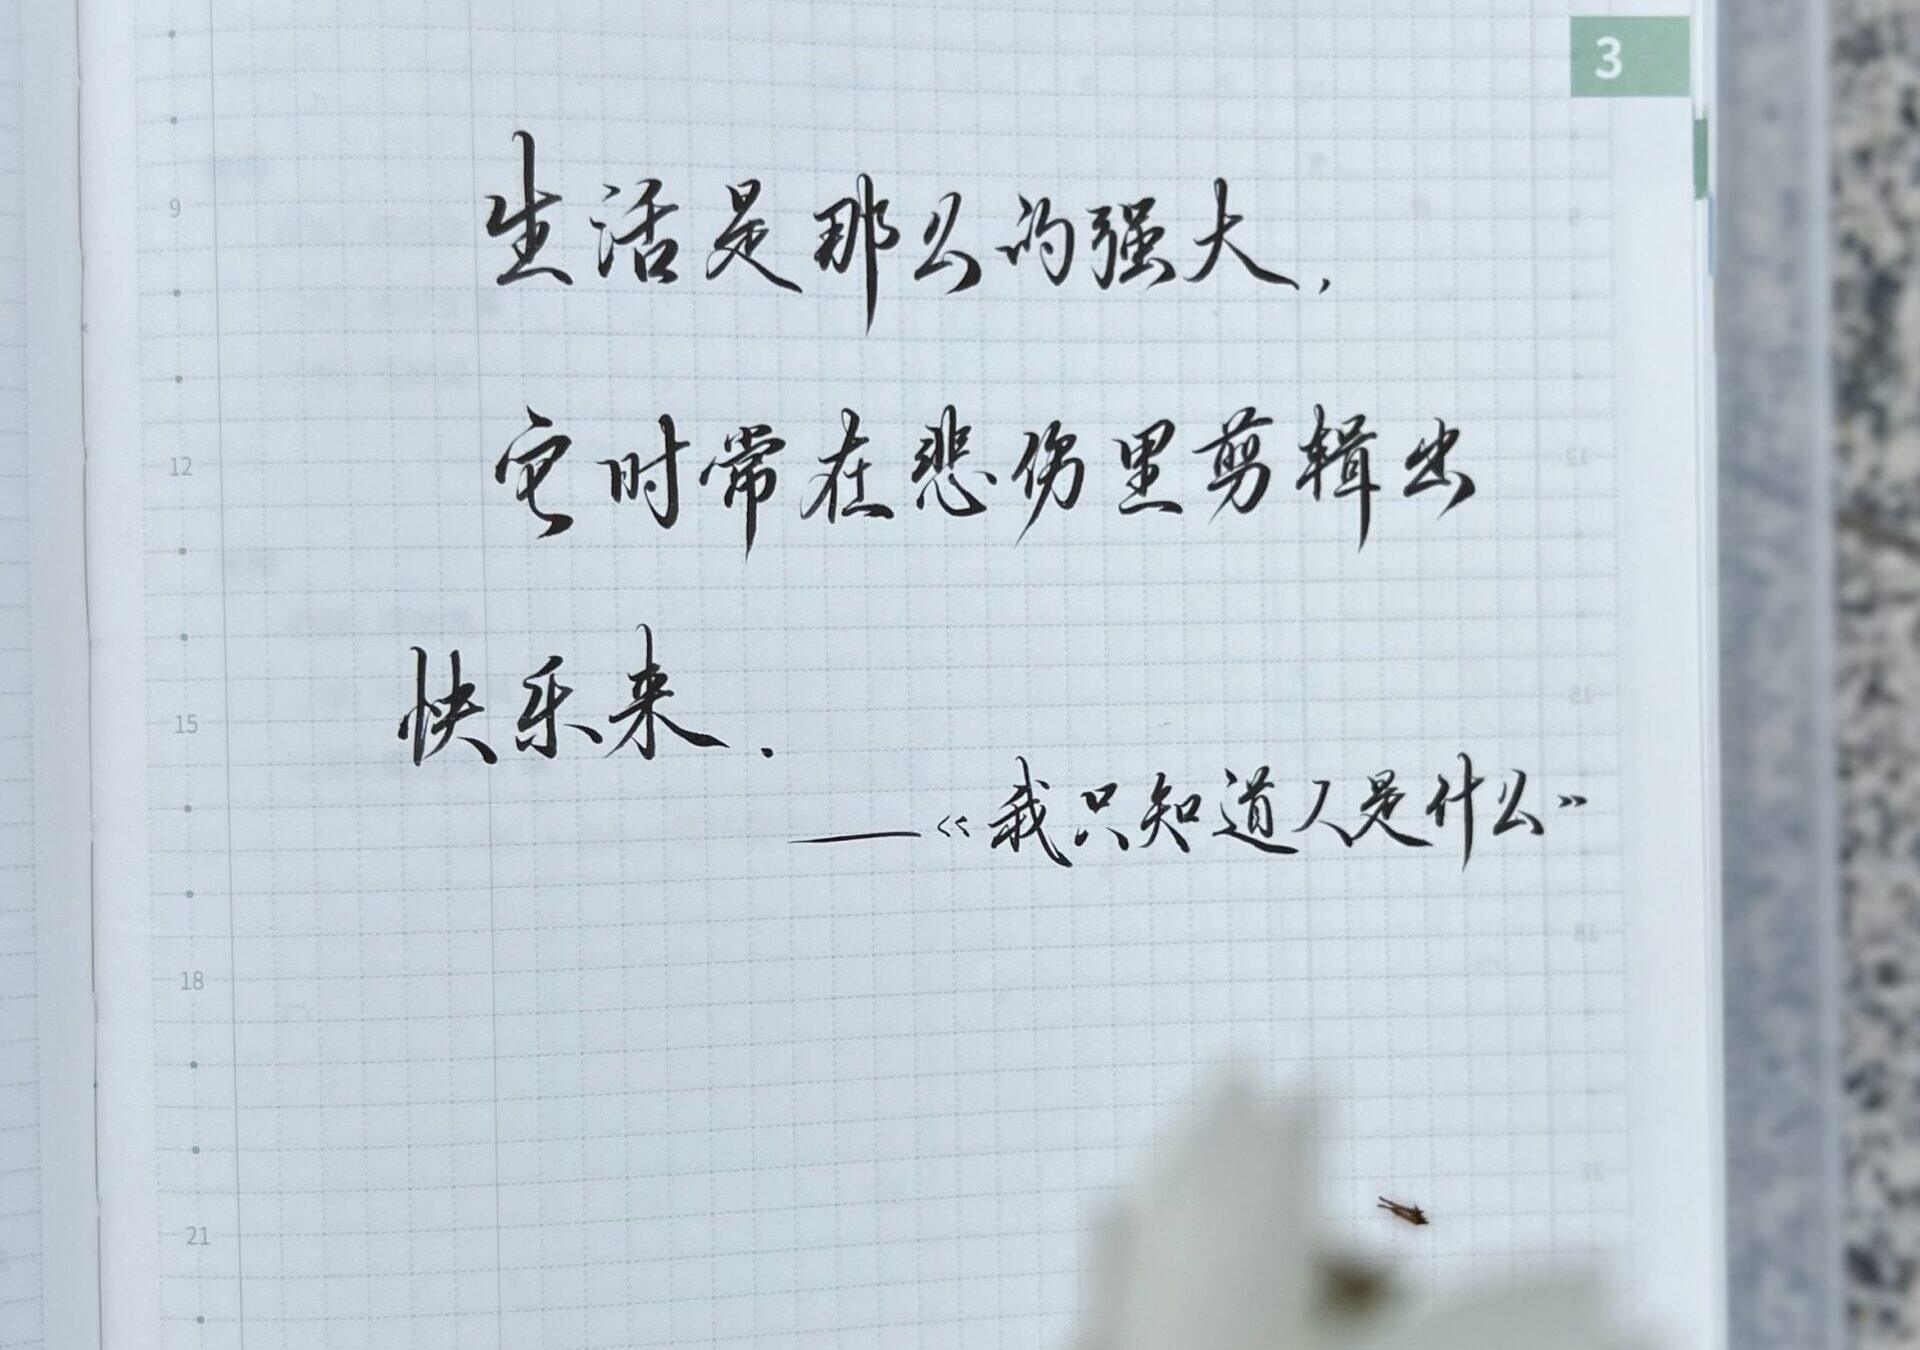 3
生活是那么的强大,
它时常在悲伤里剪辑出
快乐来.
——《我只知道人是什么》
9
12
15
18
21